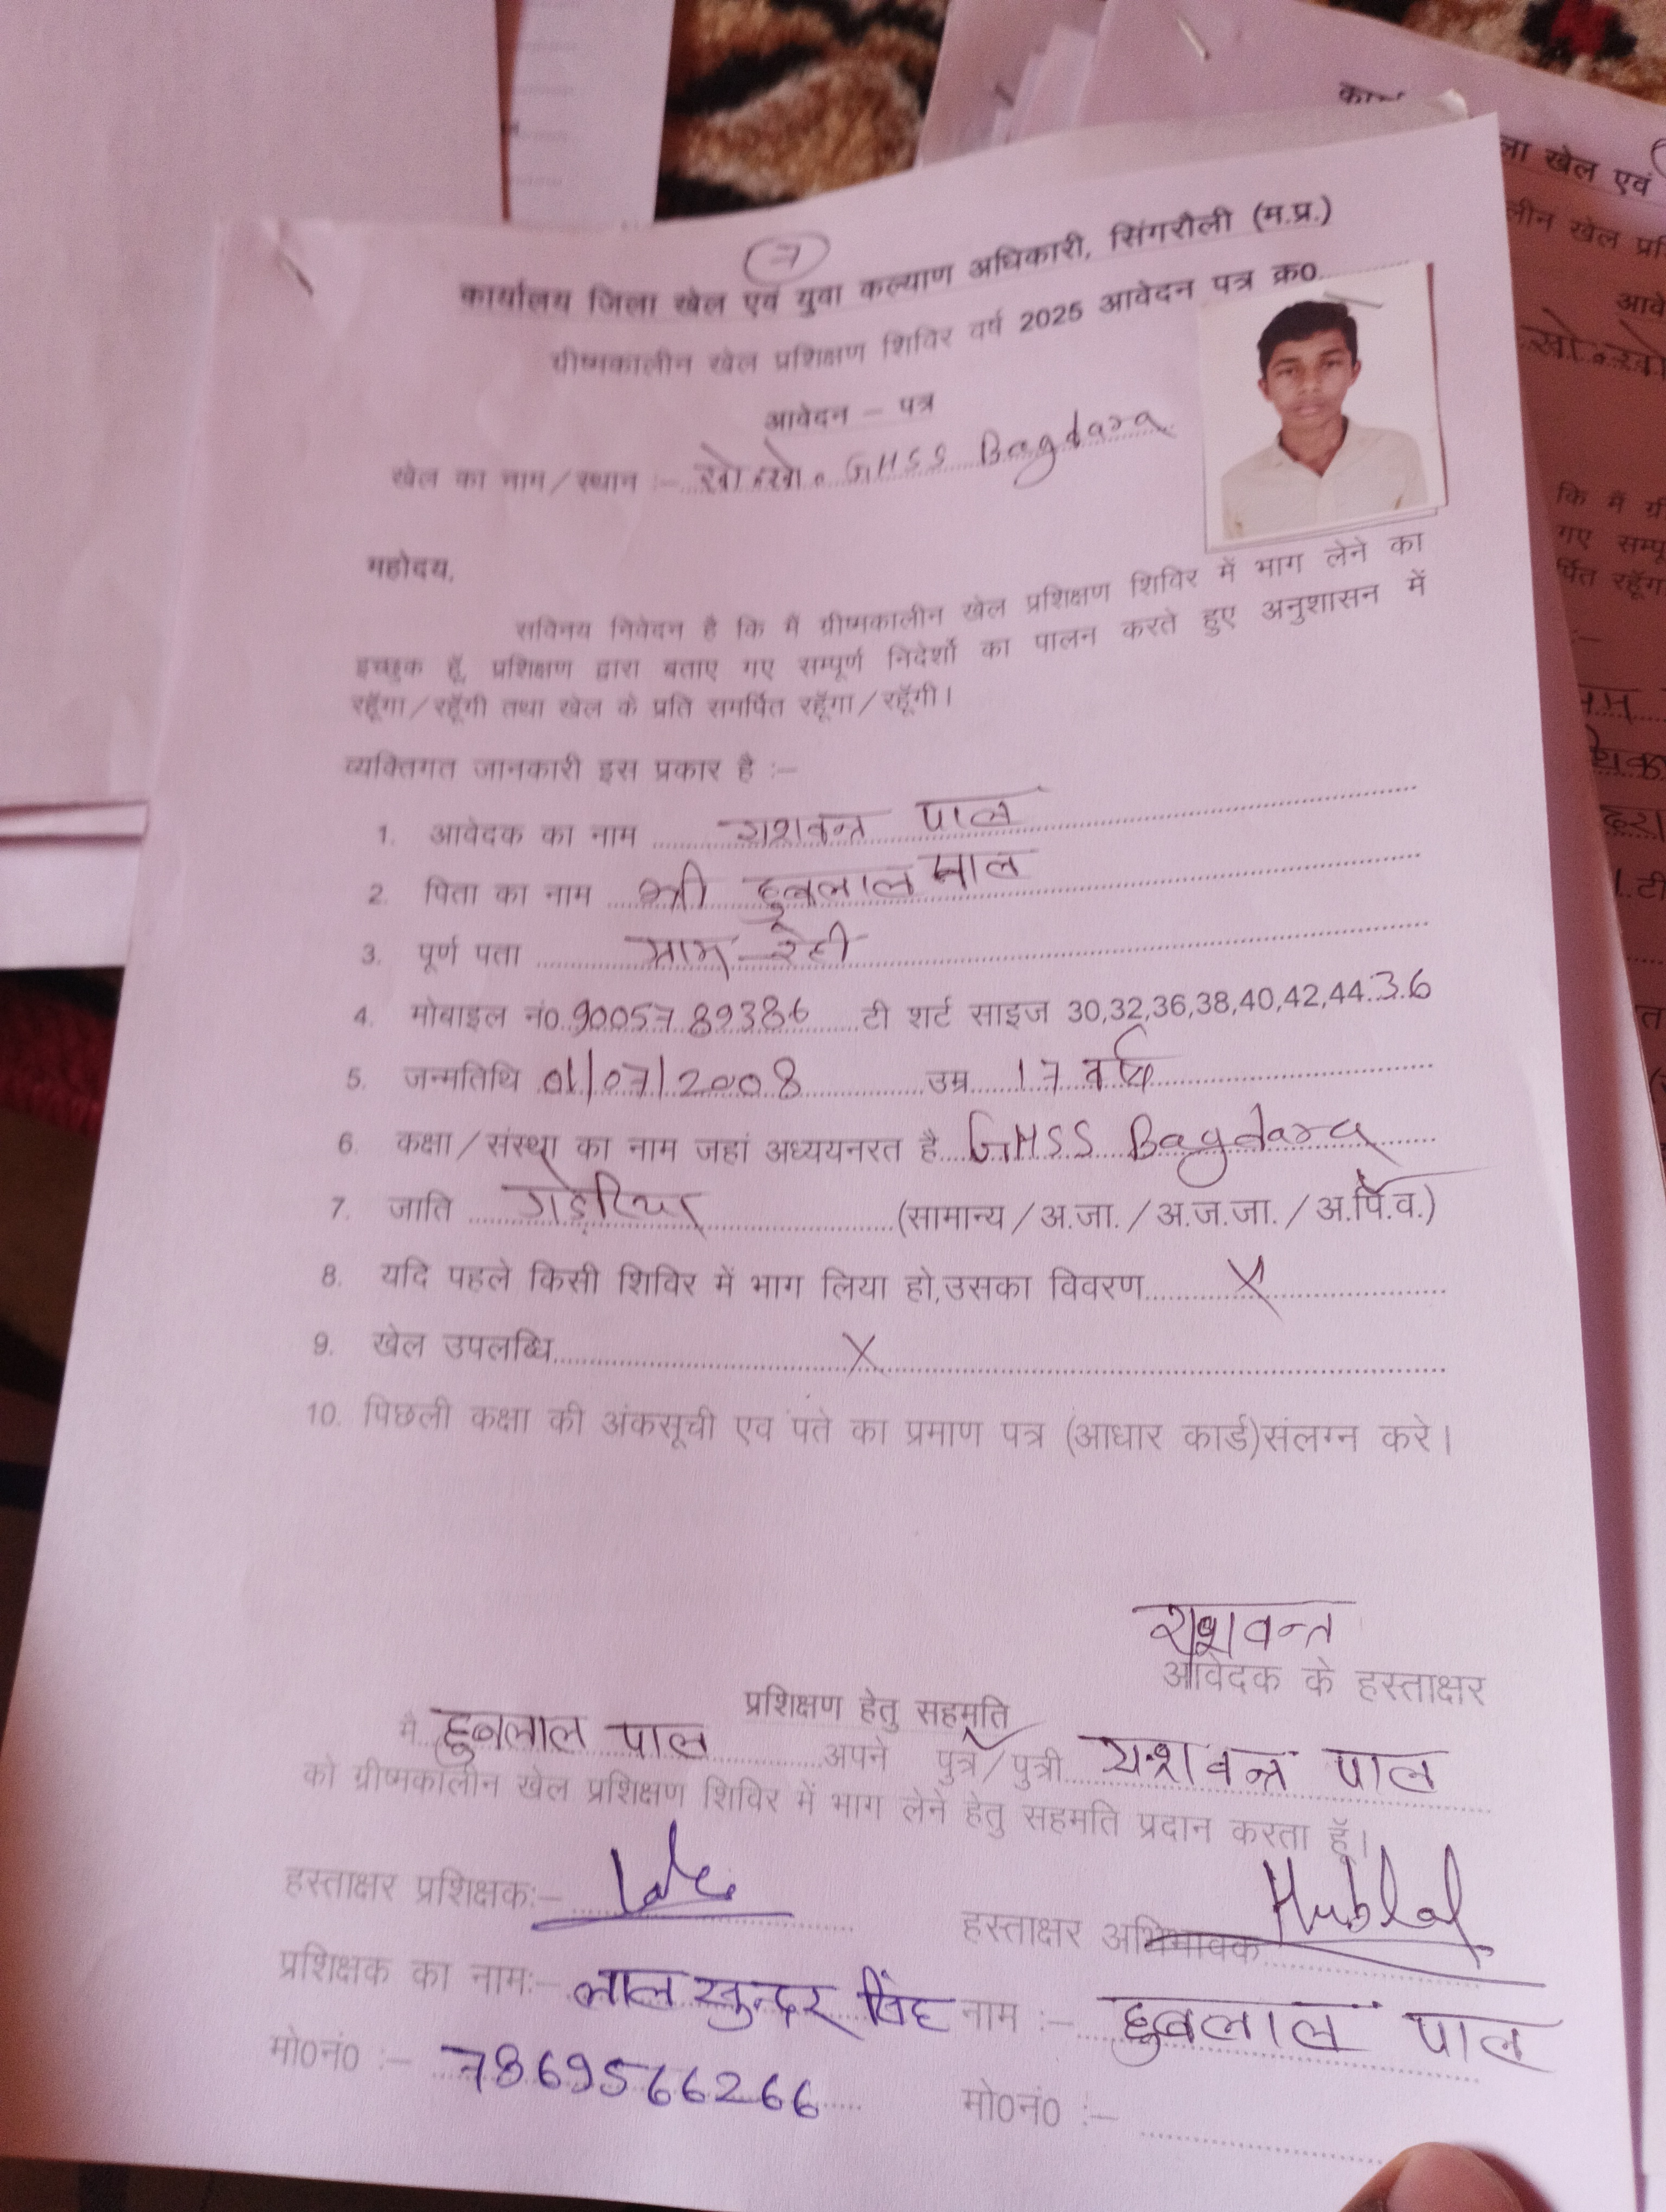 7
कार्यालय जिला खेल एवं युवा कल्याण अधिकारी, सिंगरौली (म.प्र.)
ग्रीष्मकालीन खेल प्रशिक्षण शिविर वर्ष 2025 आवेदन पत्र क्र0
आवेदन – पत्र
खेल का नाम/स्थान :– खो.खो. GHSS Bagdara
महोदय,
सविनय निवेदन है कि मैं ग्रीष्मकालीन खेल प्रशिक्षण शिविर में भाग लेने का
इच्छुक हूँ, प्रशिक्षण द्वारा बताए गए सम्पूर्ण निदेर्शो का पालन करते हुए अनुशासन में
रहूँगा/रहूँगी तथा खेल के प्रति समर्पित रहूँगा/रहूँगी।
व्यक्तिगत जानकारी इस प्रकार है :–
1. आवेदक का नाम यशवन्त पाल
2. पिता का नाम श्री हुबलाल पाल
3. पूर्ण पता ग्राम-रेही
4. मोबाइल नं0 9005789386 टी शर्ट साइज 30,32,36,38,40,42,44 36
5. जन्मतिथि 01/07/2008 उम्र 17 वर्ष
6. कक्षा/संस्था का नाम जहां अध्ययनरत है GHSS Bagdara
7. जाति गड़ेरिया (सामान्य/अ.जा./अ.ज.जा./अ.पि.व.)
8. यदि पहले किसी शिविर में भाग लिया हो,उसका विवरण X
9. खेल उपलब्धि X
10. पिछली कक्षा की अंकसूची एव पते का प्रमाण पत्र (आधार कार्ड)संलग्न करे।
यशवन्त
आवेदक के हस्ताक्षर
प्रशिक्षण हेतु सहमति
मै हुबलाल पाल अपने पुत्र/पुत्री यशवन्त पाल
को ग्रीष्मकालीन खेल प्रशिक्षण शिविर में भाग लेने हेतु सहमति प्रदान करता हूँ।
हस्ताक्षर प्रशिक्षक:–
हस्ताक्षर अभिभावक Hublal
प्रशिक्षक का नाम:– लाल सुन्दर सिंह नाम :– हुबलाल पाल
मो0नं0 :– 7869566266
मो0नं0 :–